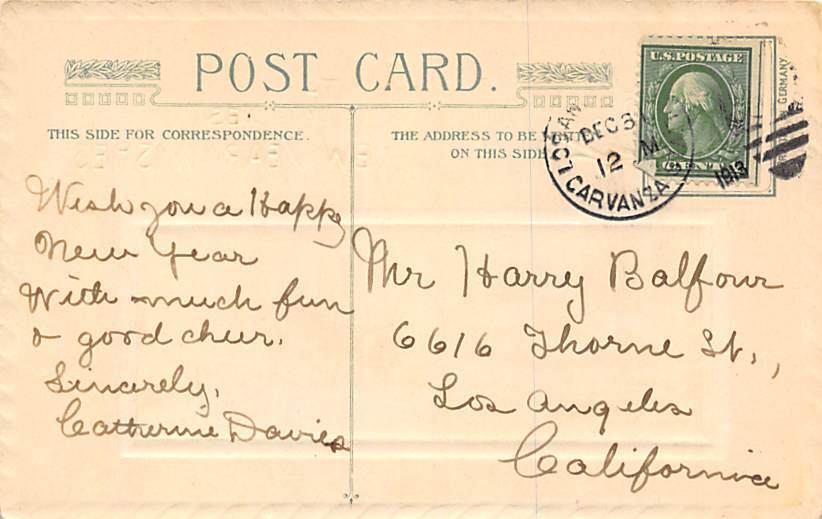 POST CARD.
THIS SIDE FOR CORRESPONDENCE.
THE ADDRESS TO BE
ON THIS SIDE
U.S. POSTAGE
GERMANY
DEC 3
12 M
CARVANZA
1913
Wish you a Happy
New Year
With much fun
& good cheer.
Sincerely,
Catherine Davies
Mr Harry Balfour
6616 Thorne St.,
Los Angeles
California